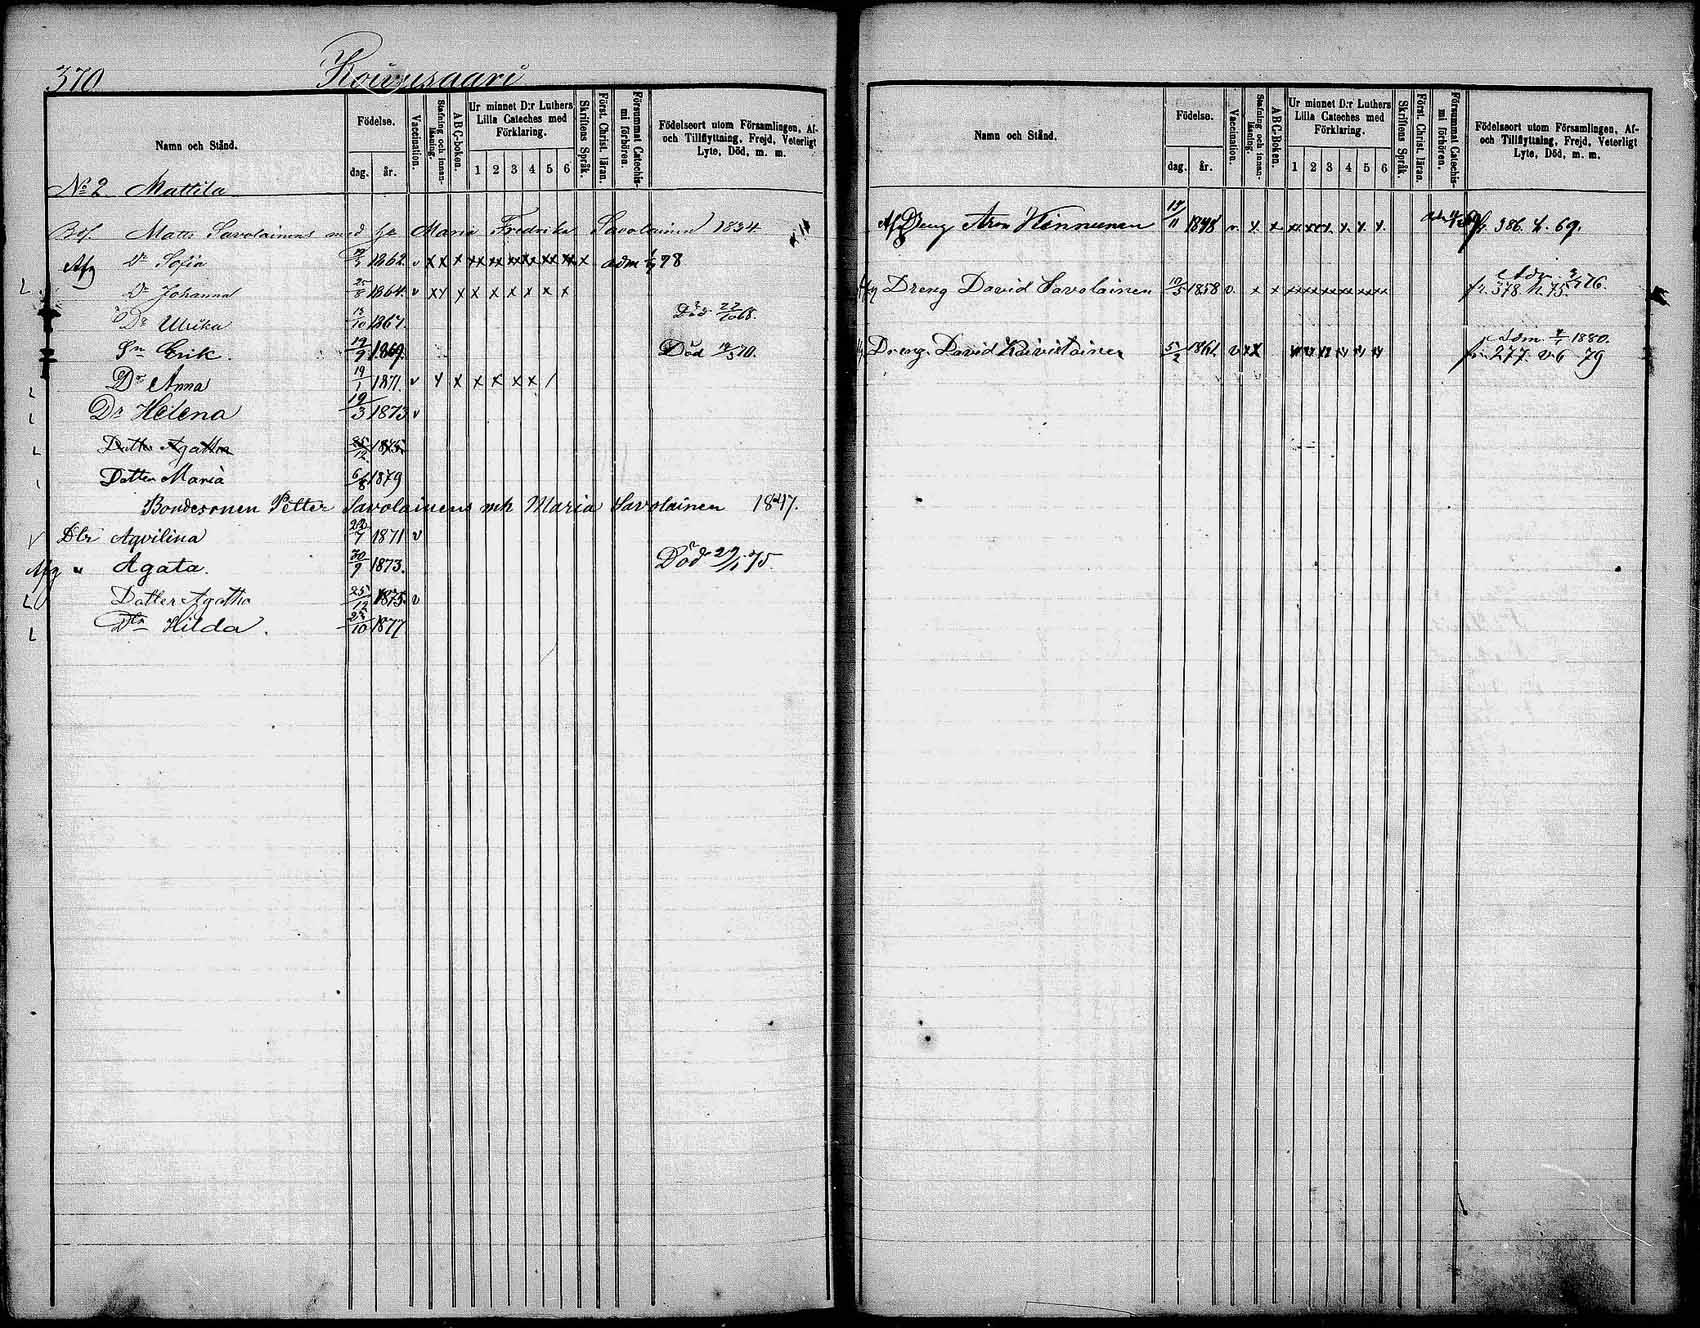 370 Kouvusaari
Namn och Stånd.
Födelse.
dag. år.
Vaccination.
Stafning och innan-läsning.
ABC-boken.
Ur minnet D:r Luthers Lilla Cateches med Förklaring.
1 2 3 4 5 6
Skriftens Språk.
Först. Christ. läran.
Försummat Catechis-mi förhören.
Födelseort utom Församlingen, Af- och Tillflyttning, Frejd, Veterligt Lyte, Död, m. m.
No 2 Mattila
Matts Savolainens med h. Maria Fredrika Savolainen 1834
Afg Dr Sofia 1862. v x x x xx xx xx xx xx xx x adm 78
L Dr Johanna 25/8 1864. v x y x x x x x x x
Dr Ulrika 13/10 1867. Död 22/10 68.
Sn Erik. 19/9 1869. Död 70.
L Dr Anna 19/1 1871. v y x x x x x /
L Dr Helena 19/3 1873 v
L Dotter Agatha 25/12 1875.
Dotter Maria 6/8 1879
Bondesonen Petter Savolainens mh Maria Savolainen 1847.
v Dtr Aqvilina 22/7 1871 v
Afg " Agata. 30/9 1873. Död 29/1 75.
L Dotter Agatha 25/12 1875. v
L Dtr Hilda. 1877
Namn och Stånd.
Födelse.
dag. år.
Vaccination.
Stafning och innan-läsning.
ABC-Boken.
Ur minnet D:r Luthers Lilla Cateches med Förklaring.
1 2 3 4 5 6
Skriftens Språk.
Först. Christ. läran.
Försummat Catechis-mi förhören.
Födelseort utom Församlingen, Af- och Tillflyttning, Frejd, Veterligt Lyte, Död, m. m.
Af Dreng Aron Kinnunen 1848 v. x x xx xx x x x x fr. 386. h. 69.
Adm. 76.
Dreng David Savolainen 1858 v. x x xx xx xx xx xx xx fr. 378. h. 75.
Adm 1880.
Dreng. David Koivistoinen 5/2 1861. v x x fr. 277. v6 79